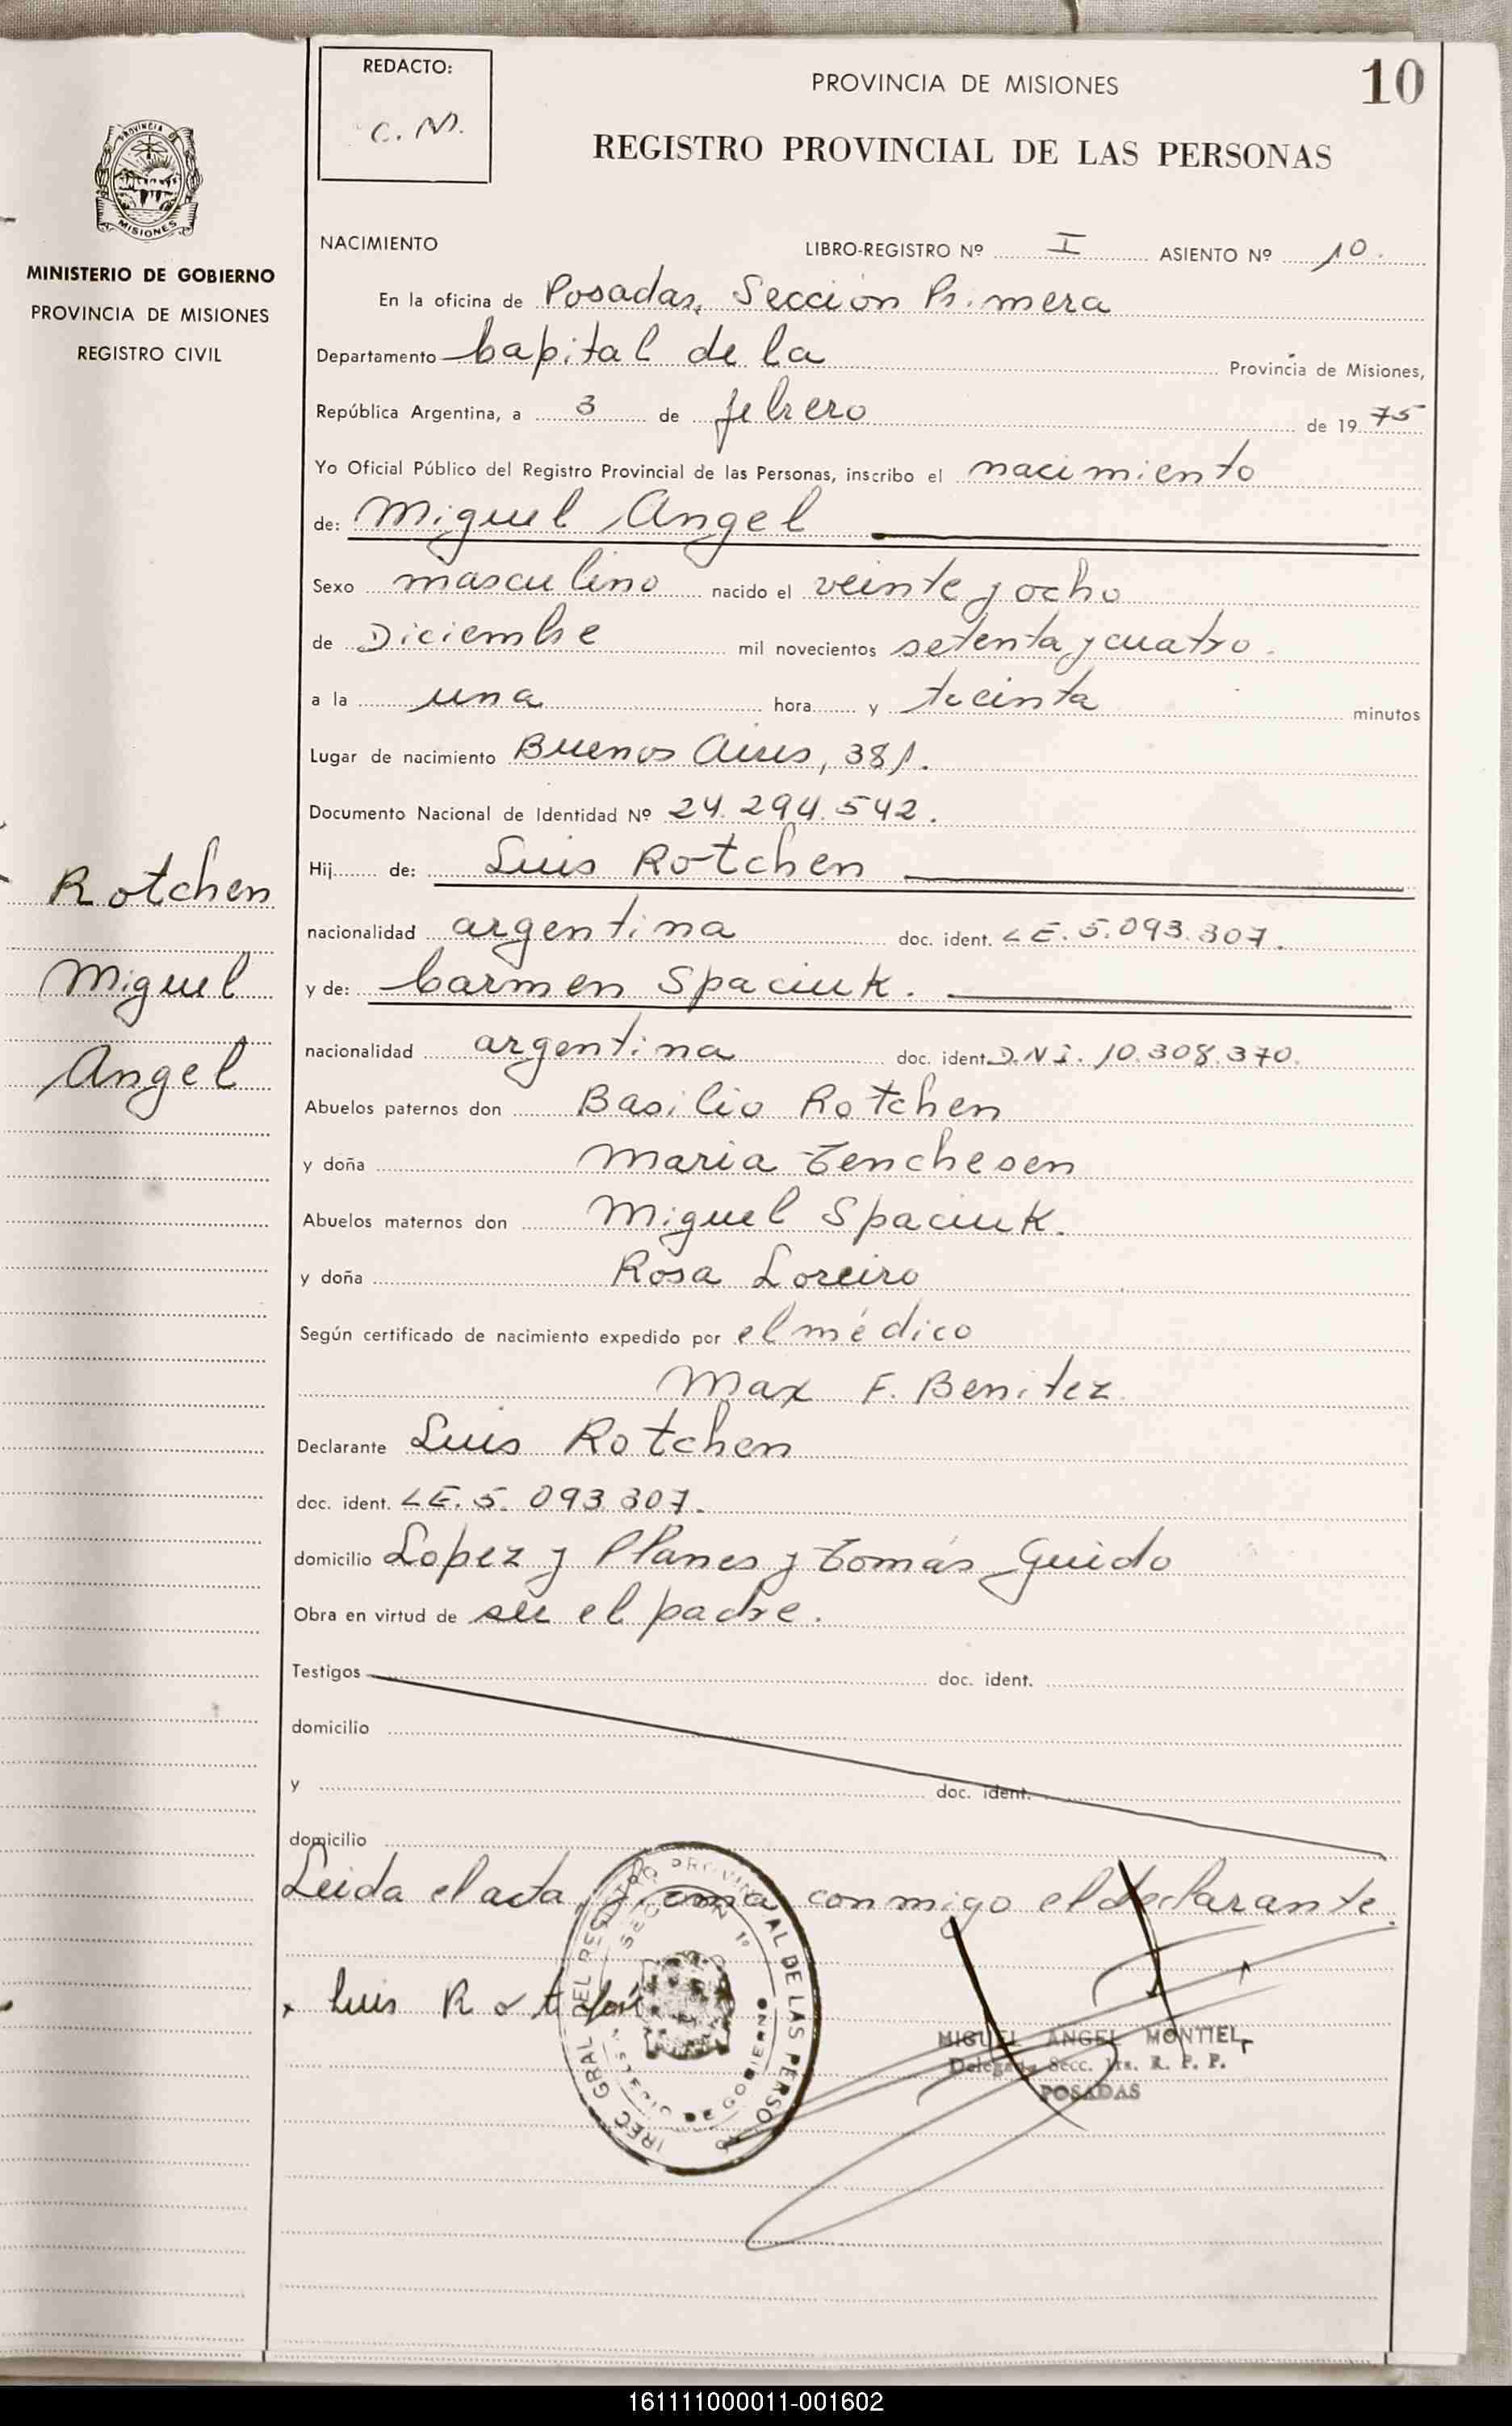 REDACTO:
C. M.
PROVINCIA DE MISIONES
10
REGISTRO PROVINCIAL DE LAS PERSONAS
PROVINCIA DE
MISIONES
MINISTERIO DE GOBIERNO
PROVINCIA DE MISIONES
REGISTRO CIVIL
NACIMIENTO LIBRO-REGISTRO Nº I ASIENTO Nº 10.
En la oficina de Posadas, Sección Primera
Departamento Capital de la Provincia de Misiones,
República Argentina, a 3 de febrero de 19 75
Yo Oficial Público del Registro Provincial de las Personas, inscribo el nacimiento
de: Miguel Angel
Sexo masculino nacido el veinte y ocho
de Diciembre mil novecientos setenta y cuatro.
a la una hora y treinta minutos
Lugar de nacimiento Buenos Aires, 381.
Documento Nacional de Identidad Nº 24.294.542.
Hij de: Luis Rotchen
nacionalidad argentina doc. ident. LE. 5.093.307.
y de: Carmen Spaciuk.
nacionalidad argentina doc. ident. D.N.I. 10.308.370.
Abuelos paternos don Basilio Rotchen
y doña Maria Tenchesen
Abuelos maternos don Miguel Spaciuk.
y doña Rosa Loreiro
Según certificado de nacimiento expedido por el médico
Max F. Benitez
Declarante Luis Rotchen
doc. ident. LE. 5. 093.307.
domicilio Lopez y Planes y Tomás Guido
Obra en virtud de ser el padre.
Testigos doc. ident.
domicilio
y doc. ident.
domicilio
Leida el acta, firma conmigo el declarante.
Rotchen
Miguel
Angel
Luis
DIREC GRAL DEL REGISTRO PROVINCIAL DE LAS PERSO
SECCION 1º
GOBIERNO
MIGUEL ANGEL MONTIEL
Delegado Secc. 1ra. R. P. P.
POSADAS
161111000011-001602